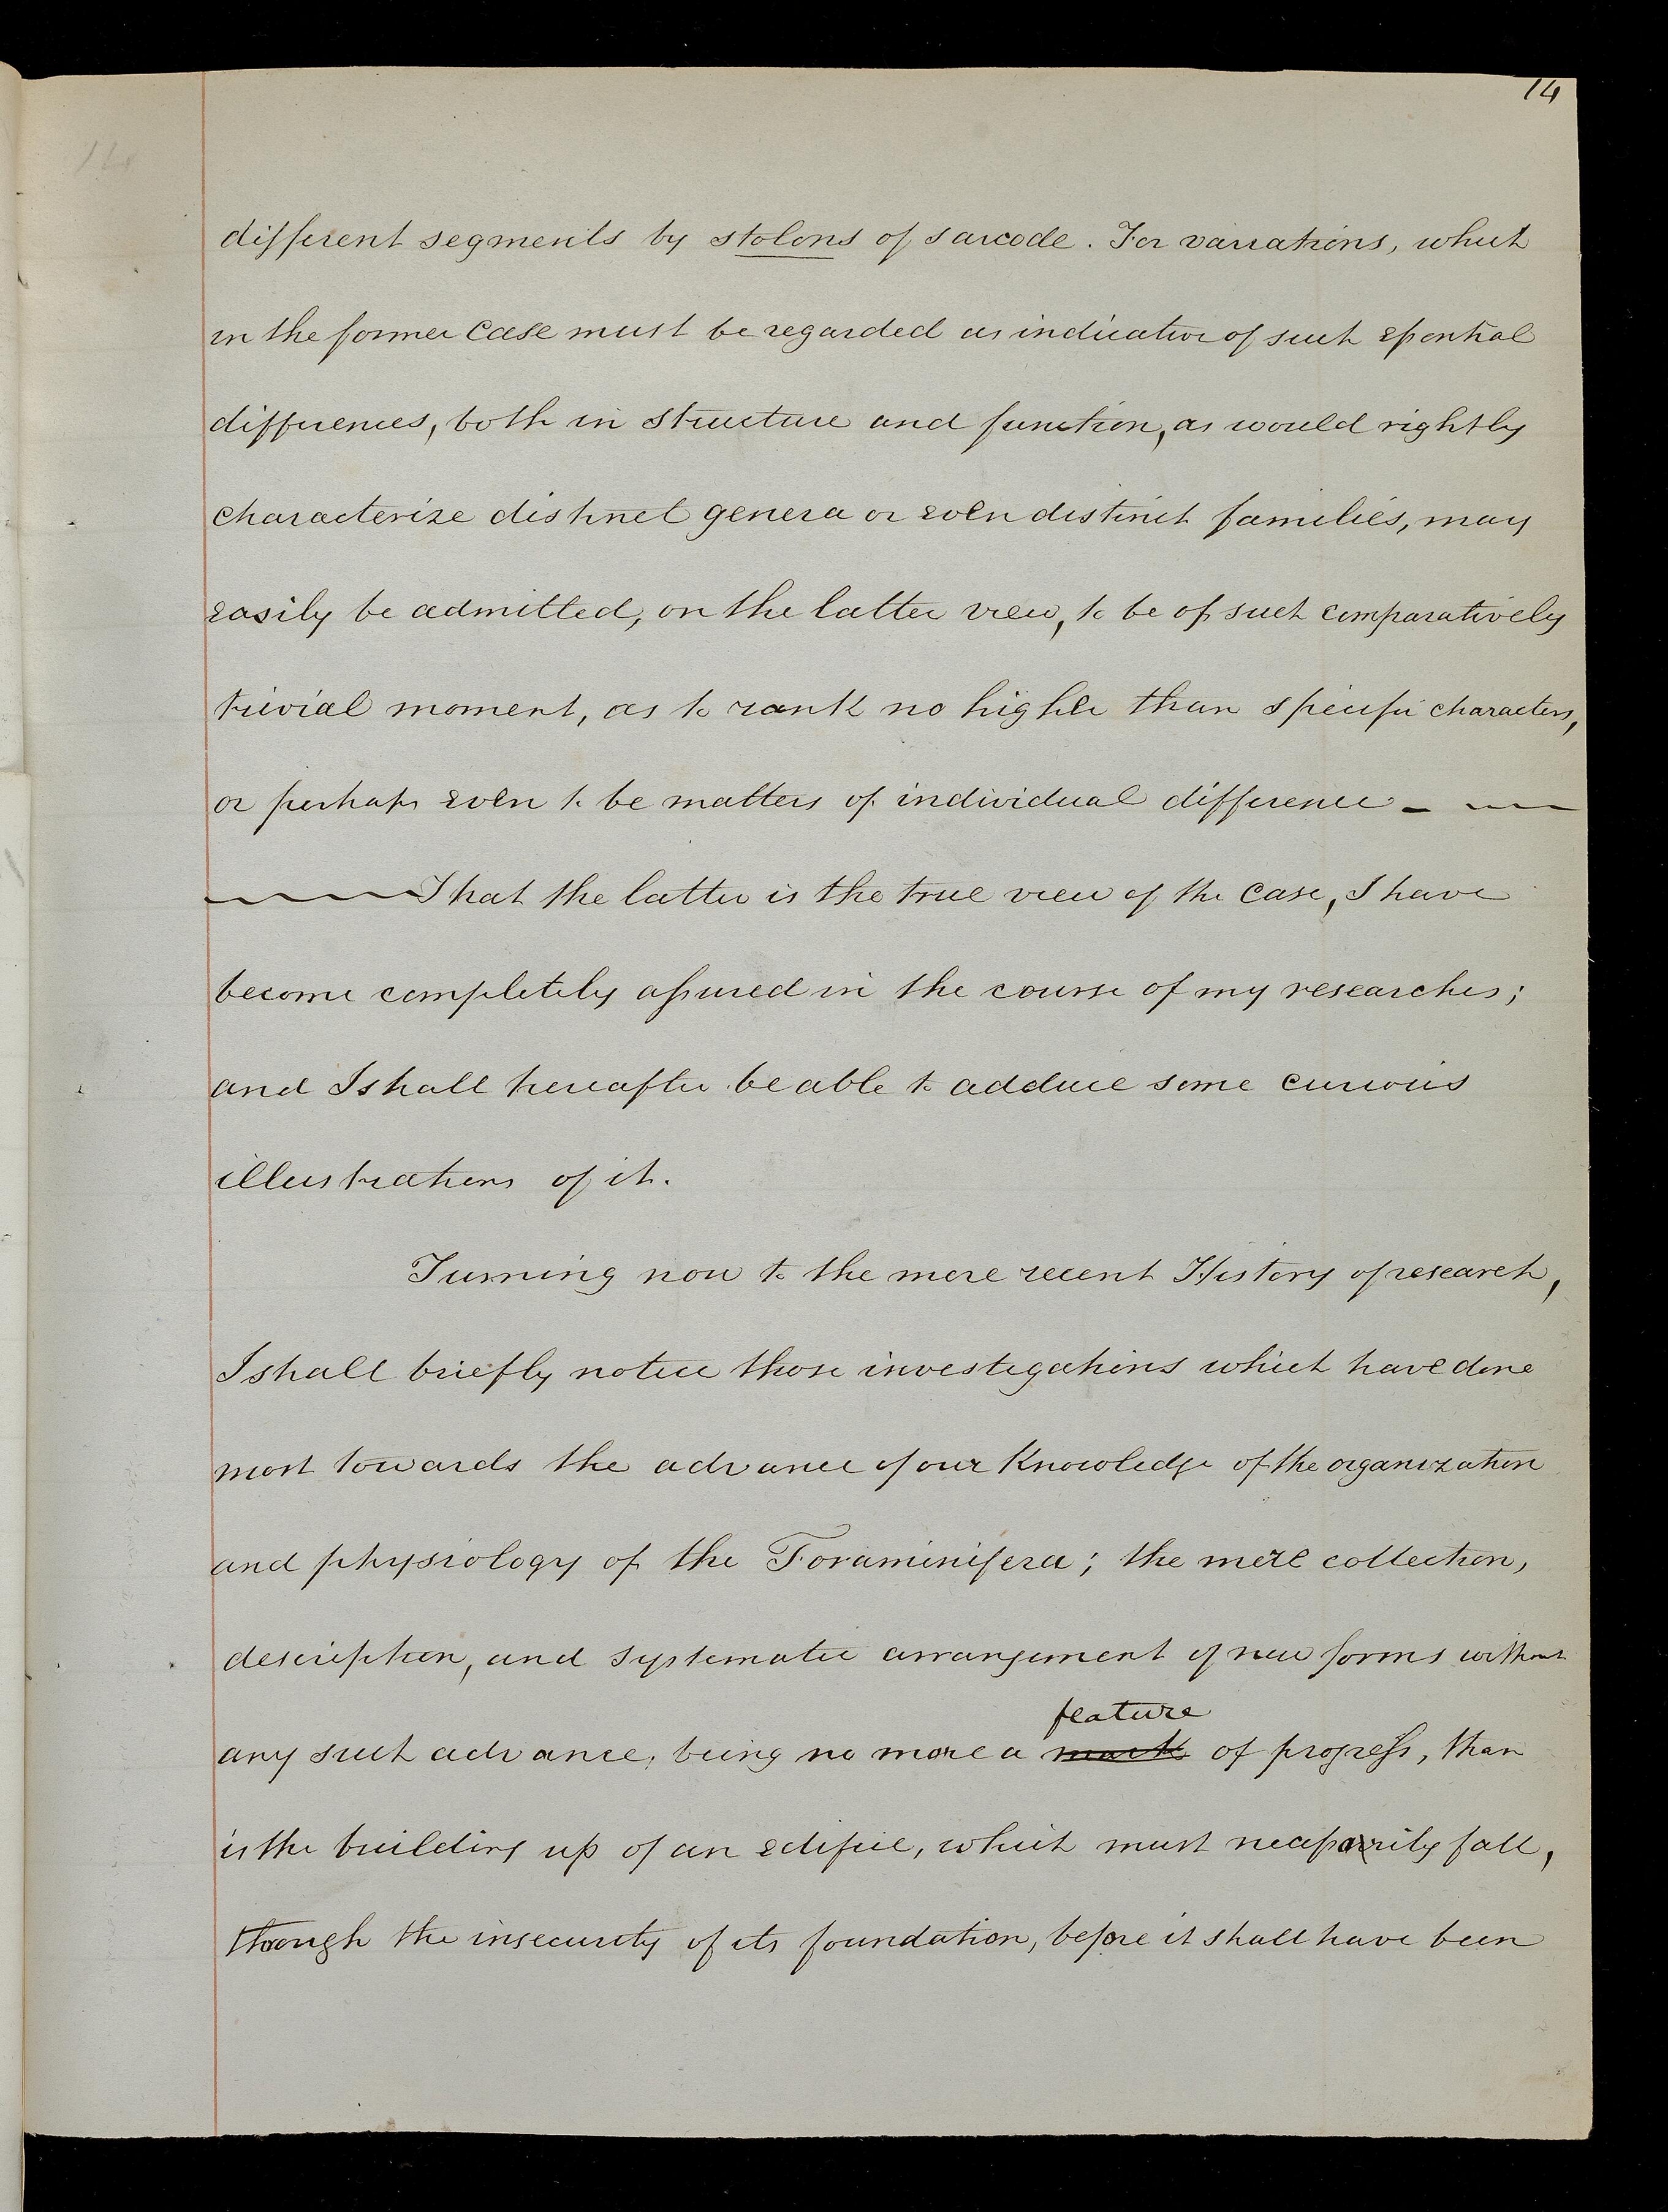 14
different segments by stolons of sarcode. For variations, which
in the former case must be regarded as indicative of such essential
differences, both in structure and function, as would rightly
characterize distinct genera or even distinct families, may
easily be admitted, on the latter view, to be of such comparatively
trivial moment, as to rank no higher than specific characters,
or perhaps even to be matters of individual difference –
That the latter is the true view of the case, I have
become completely assured in the course of my researches;
and I shall hereafter be able to adduce some curious
illustrations of it.
Turning now to the more recent History of research,
I shall briefly notice those investigations which have done
most towards the advance of our Knowledge of the organization
and physiology of the Foraminifera; the mere collection,
description, and systematic arrangement of new forms without
feature
any such advance, being no more a mark of progress, than
is the building up of an edifice, which must necessarily fall,
though the insecurity of its foundation, before it shall have been